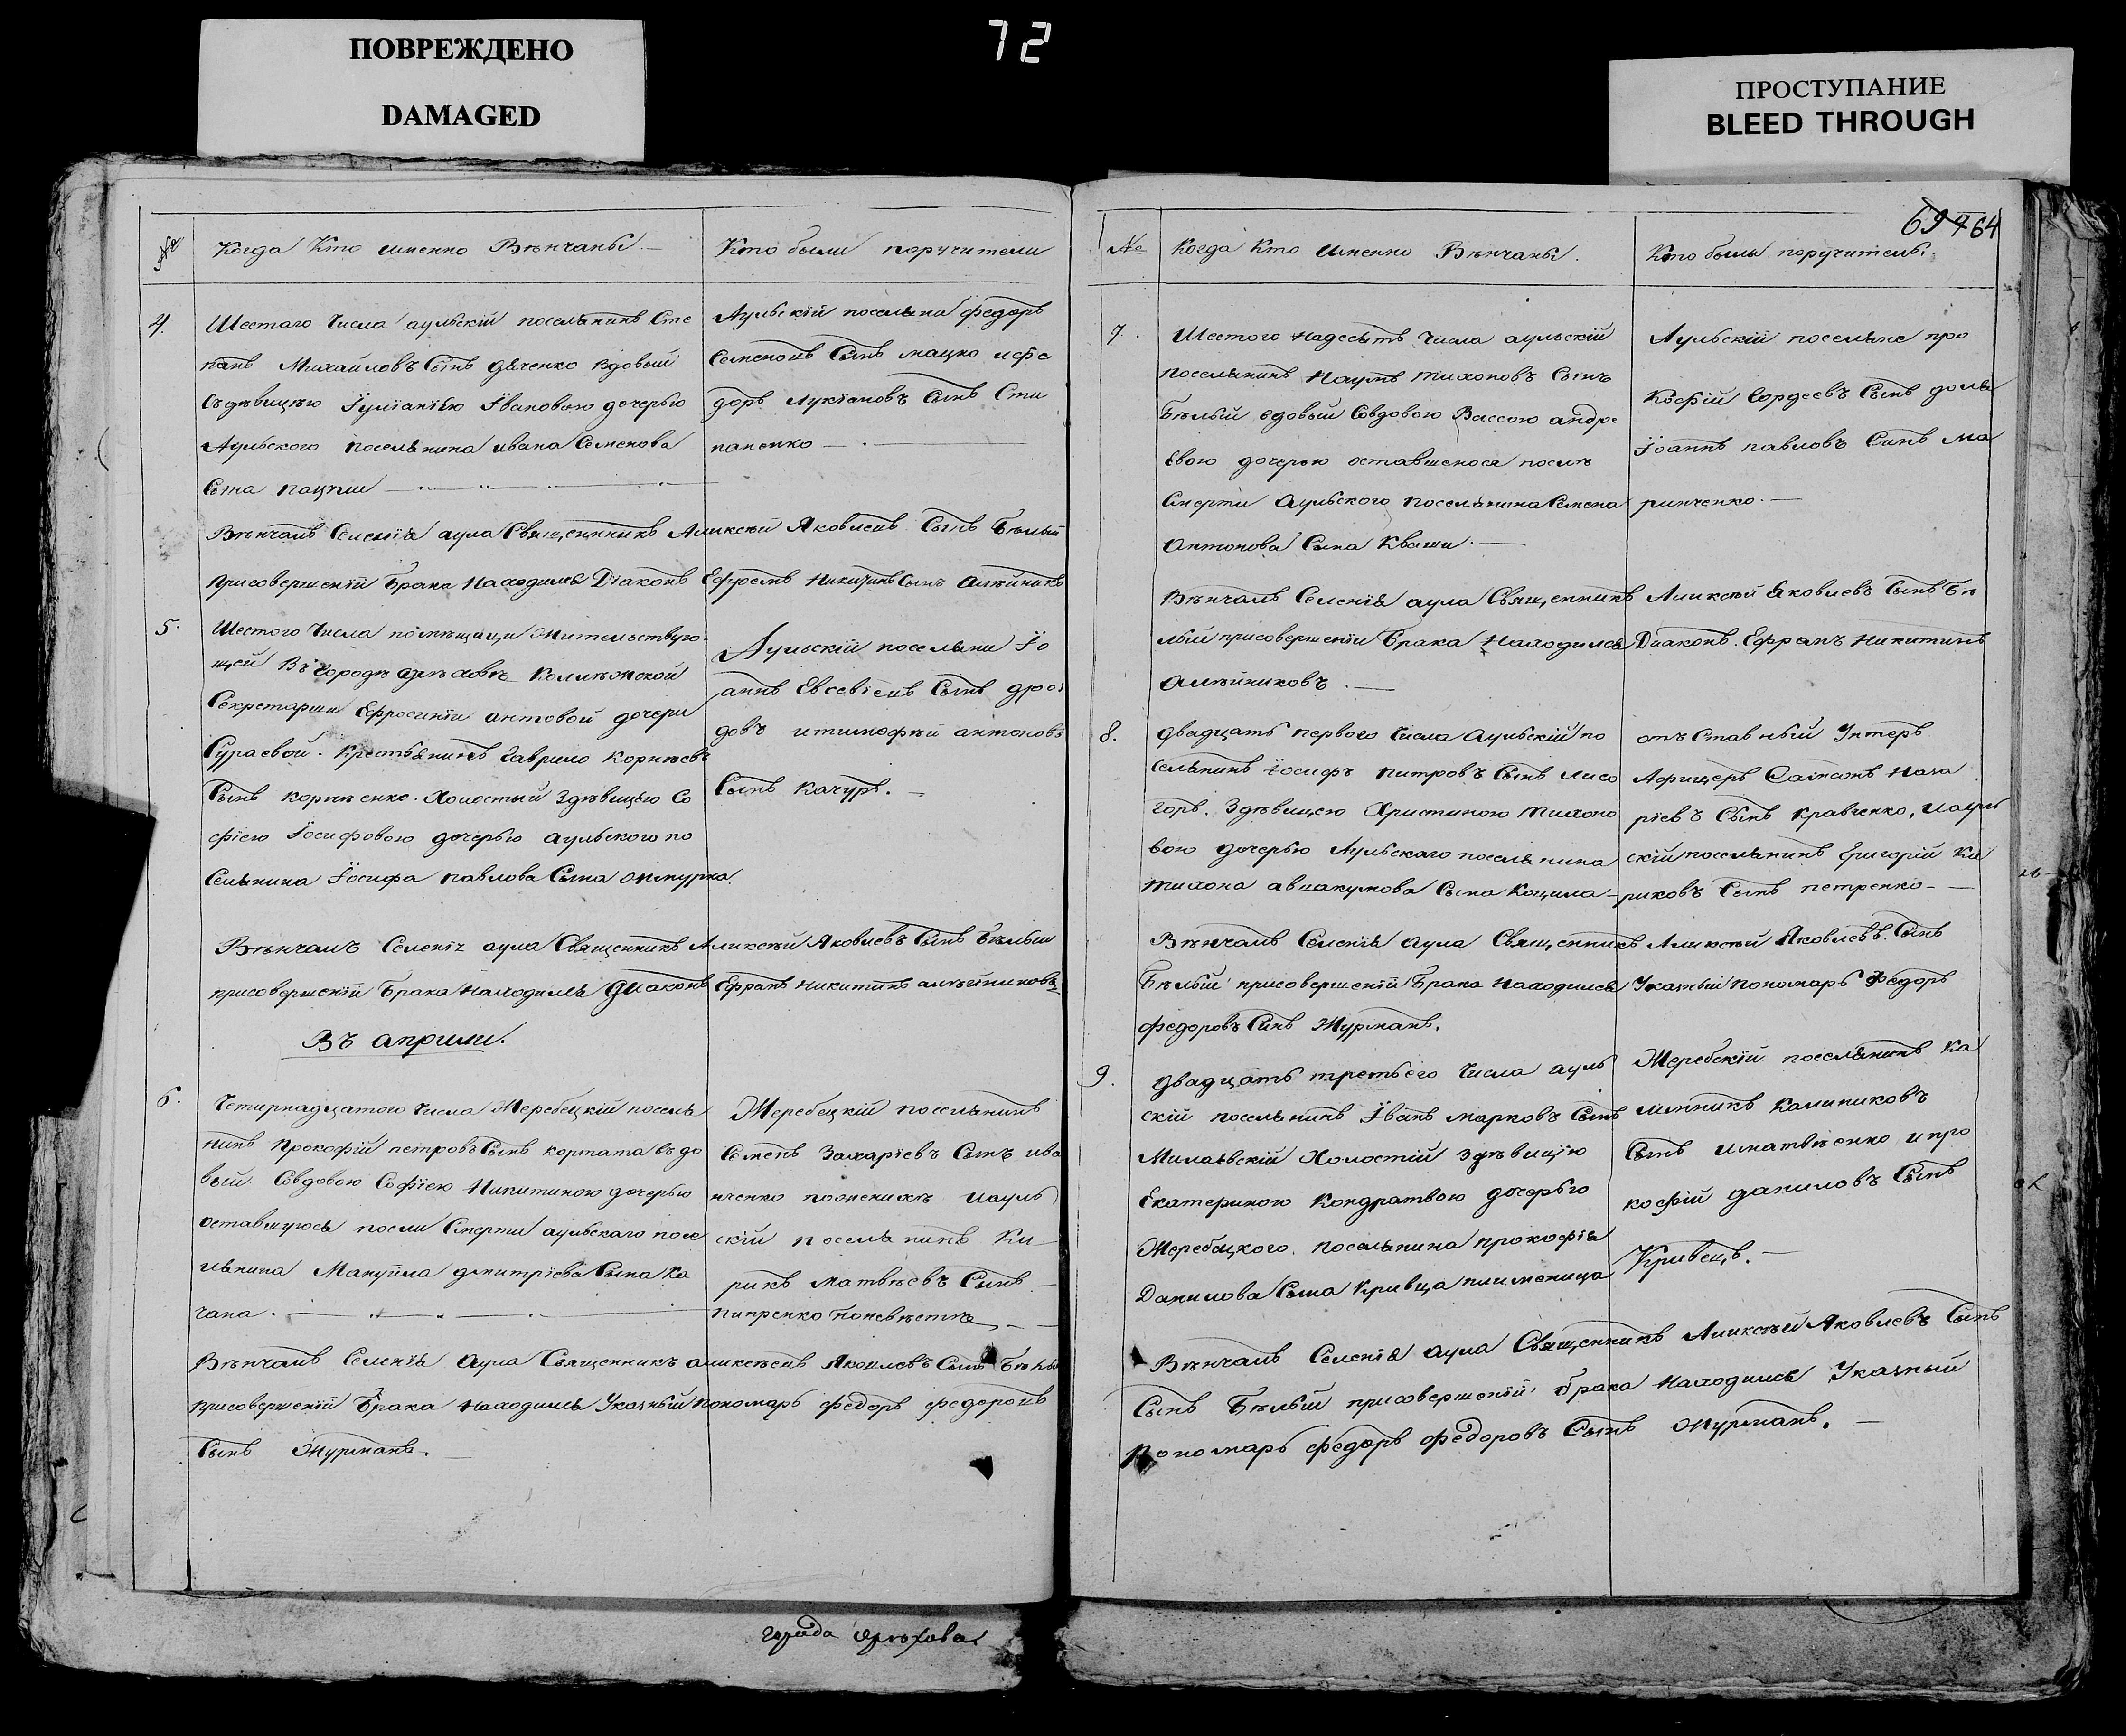 ПОВРЕЖДЕНО
DAMAGED
72
ПРОСТУПАНИЕ
BLEED THROUGH
№
Когда Кто именно Вѣнчаны
Кто были поручители
4.
Шестаго Числа аульскій поселянинъ Сте
панъ Михайловъ Сынъ дяченко вдовый
Съдѣвицѣю Іуліаніею Івановою дочерью
Аульского поселянина ивана Семенова
Сына пацули
Аульскій поселяни федоръ
Семеновъ Сынъ мацко ифе
доръ Лукіановъ Сынъ Сти
паненко
Вѣнчалъ Селенія аула Священникъ Аликсѣй Яковлевъ Сынъ Бѣлый
присовершеніи Брака Находился Діаконъ Ефремъ Никитинъ Сынъ алѣйниковъ
5.
Шестого Числа помѣщици Жительствую
щей Въ городѣ орѣховѣ Колѣжской
Секретарши Ефросиніи антовой дочери
Гураевой. Крестьянинъ гаврило корнѣевъ
Сынъ корнѣенко. Холостый Здѣвицѣю Со
фіею Іосифовою дочерью аульского по
Селянина Іосифа павлова Сына
Аульскій поселяни Іо
аннъ Евсевіевъ Сынъ дроз
довъ итимофѣй антоновъ
Сынъ Качуръ.
Вѣнчалъ Селенія аула Священникъ Аликсѣй Яковлевъ Сынъ Бѣлый
присовершеніи Брака находился Диаконъ Ефремъ Никитинъ алѣйниковъ
Въ априли.
6.
Четирнадцатого Числа Жеребецкій поселя
нинъ Прокофій петровъ Сынъ корпата вдо
вый. Совдовою Софіею Никитиною дочерью
оставшуюся посли Смерти аульскаго посе
лянина Мануйла дмитріева Сына Ка
чана.
Жеребецкій поселянинъ
Семенъ Захаріевъ Сынъ ива
нченко поженихѣ иауль
скій поселянинъ Ки
рикъ матвѣевъ Сынъ
пипренко поневѣстѣ
Вѣнчалъ Селенія аула Священникъ аликсѣевъ Яковлевъ Сынъ Бѣлы
присовершеніи Брака Находился Указный пономарь федоръ федоровъ
Сынъ Журманъ.
города орѣхова
69 4 64
№
Когда Кто именно Вѣнчаны.
Кто были поручители
7.
Шестого Надесять Числа аульскій
поселянинъ Наумъ тихоновъ Сынъ
Бѣлый вдовый Совдовою Вассою андре
Евою дочерью оставшеюся послѣ
Смерти аульского поселянина Семена
антонова Сына Кваши.
Аульскій поселяне про
Кофій Гордеевъ Сынъ доля
Іоаннъ павловъ Синъ Ма
ринченко.
Вѣнчалъ Селенія аула Священникъ Аликсѣй Яковлевъ Сынъ Бѣ
лый присовершеніи Брака Находился Диаконъ. Ефремъ Никитинъ
алѣйниковъ.
8.
двадцать первого Числа Аульскій по
селянинъ Іосифъ питровъ Сынъ лисо
горъ. Здѣвицею Христиною тихоно
вою дочерью Аульскаго поселянина
тихона авакумова Сына Коцила
отъ Ставный Унтеръ
Афицеръ Самсонъ Наза
ріевъ Сынъ кравченко, иауль
скій поселянинъ Григорій Ки
риковъ Сынъ петренко
Вѣнчалъ Селенія аула Священникъ Аликсѣй Яковлевъ. Сынъ
Бѣлый присовершеніи Брака Находился Указный пономарь Федоръ
федоровъ Синъ Журманъ.
9.
двадцать третьего Числа ауль
скій поселянинъ Іванъ марковъ Сынъ
Милаевскій Холостій здѣвицію
Екатериною кондратвою дочерью
Жеребецкого поселянина прокофія
Данилова Сына кривца плименица
Жеребскій поселянинъ Ка
линникъ Калиниковъ
Сынъ иматвѣенко ипро
кофій даниловъ Сынъ
Кривецъ.
Вѣнчалъ Селенія аула Священникъ Аликсѣй Яковлевъ Сынъ
Сынъ Бѣлый присовершеніи Брака Находился Указный
Пономарь федоръ федоровъ Сынъ Журманъ.